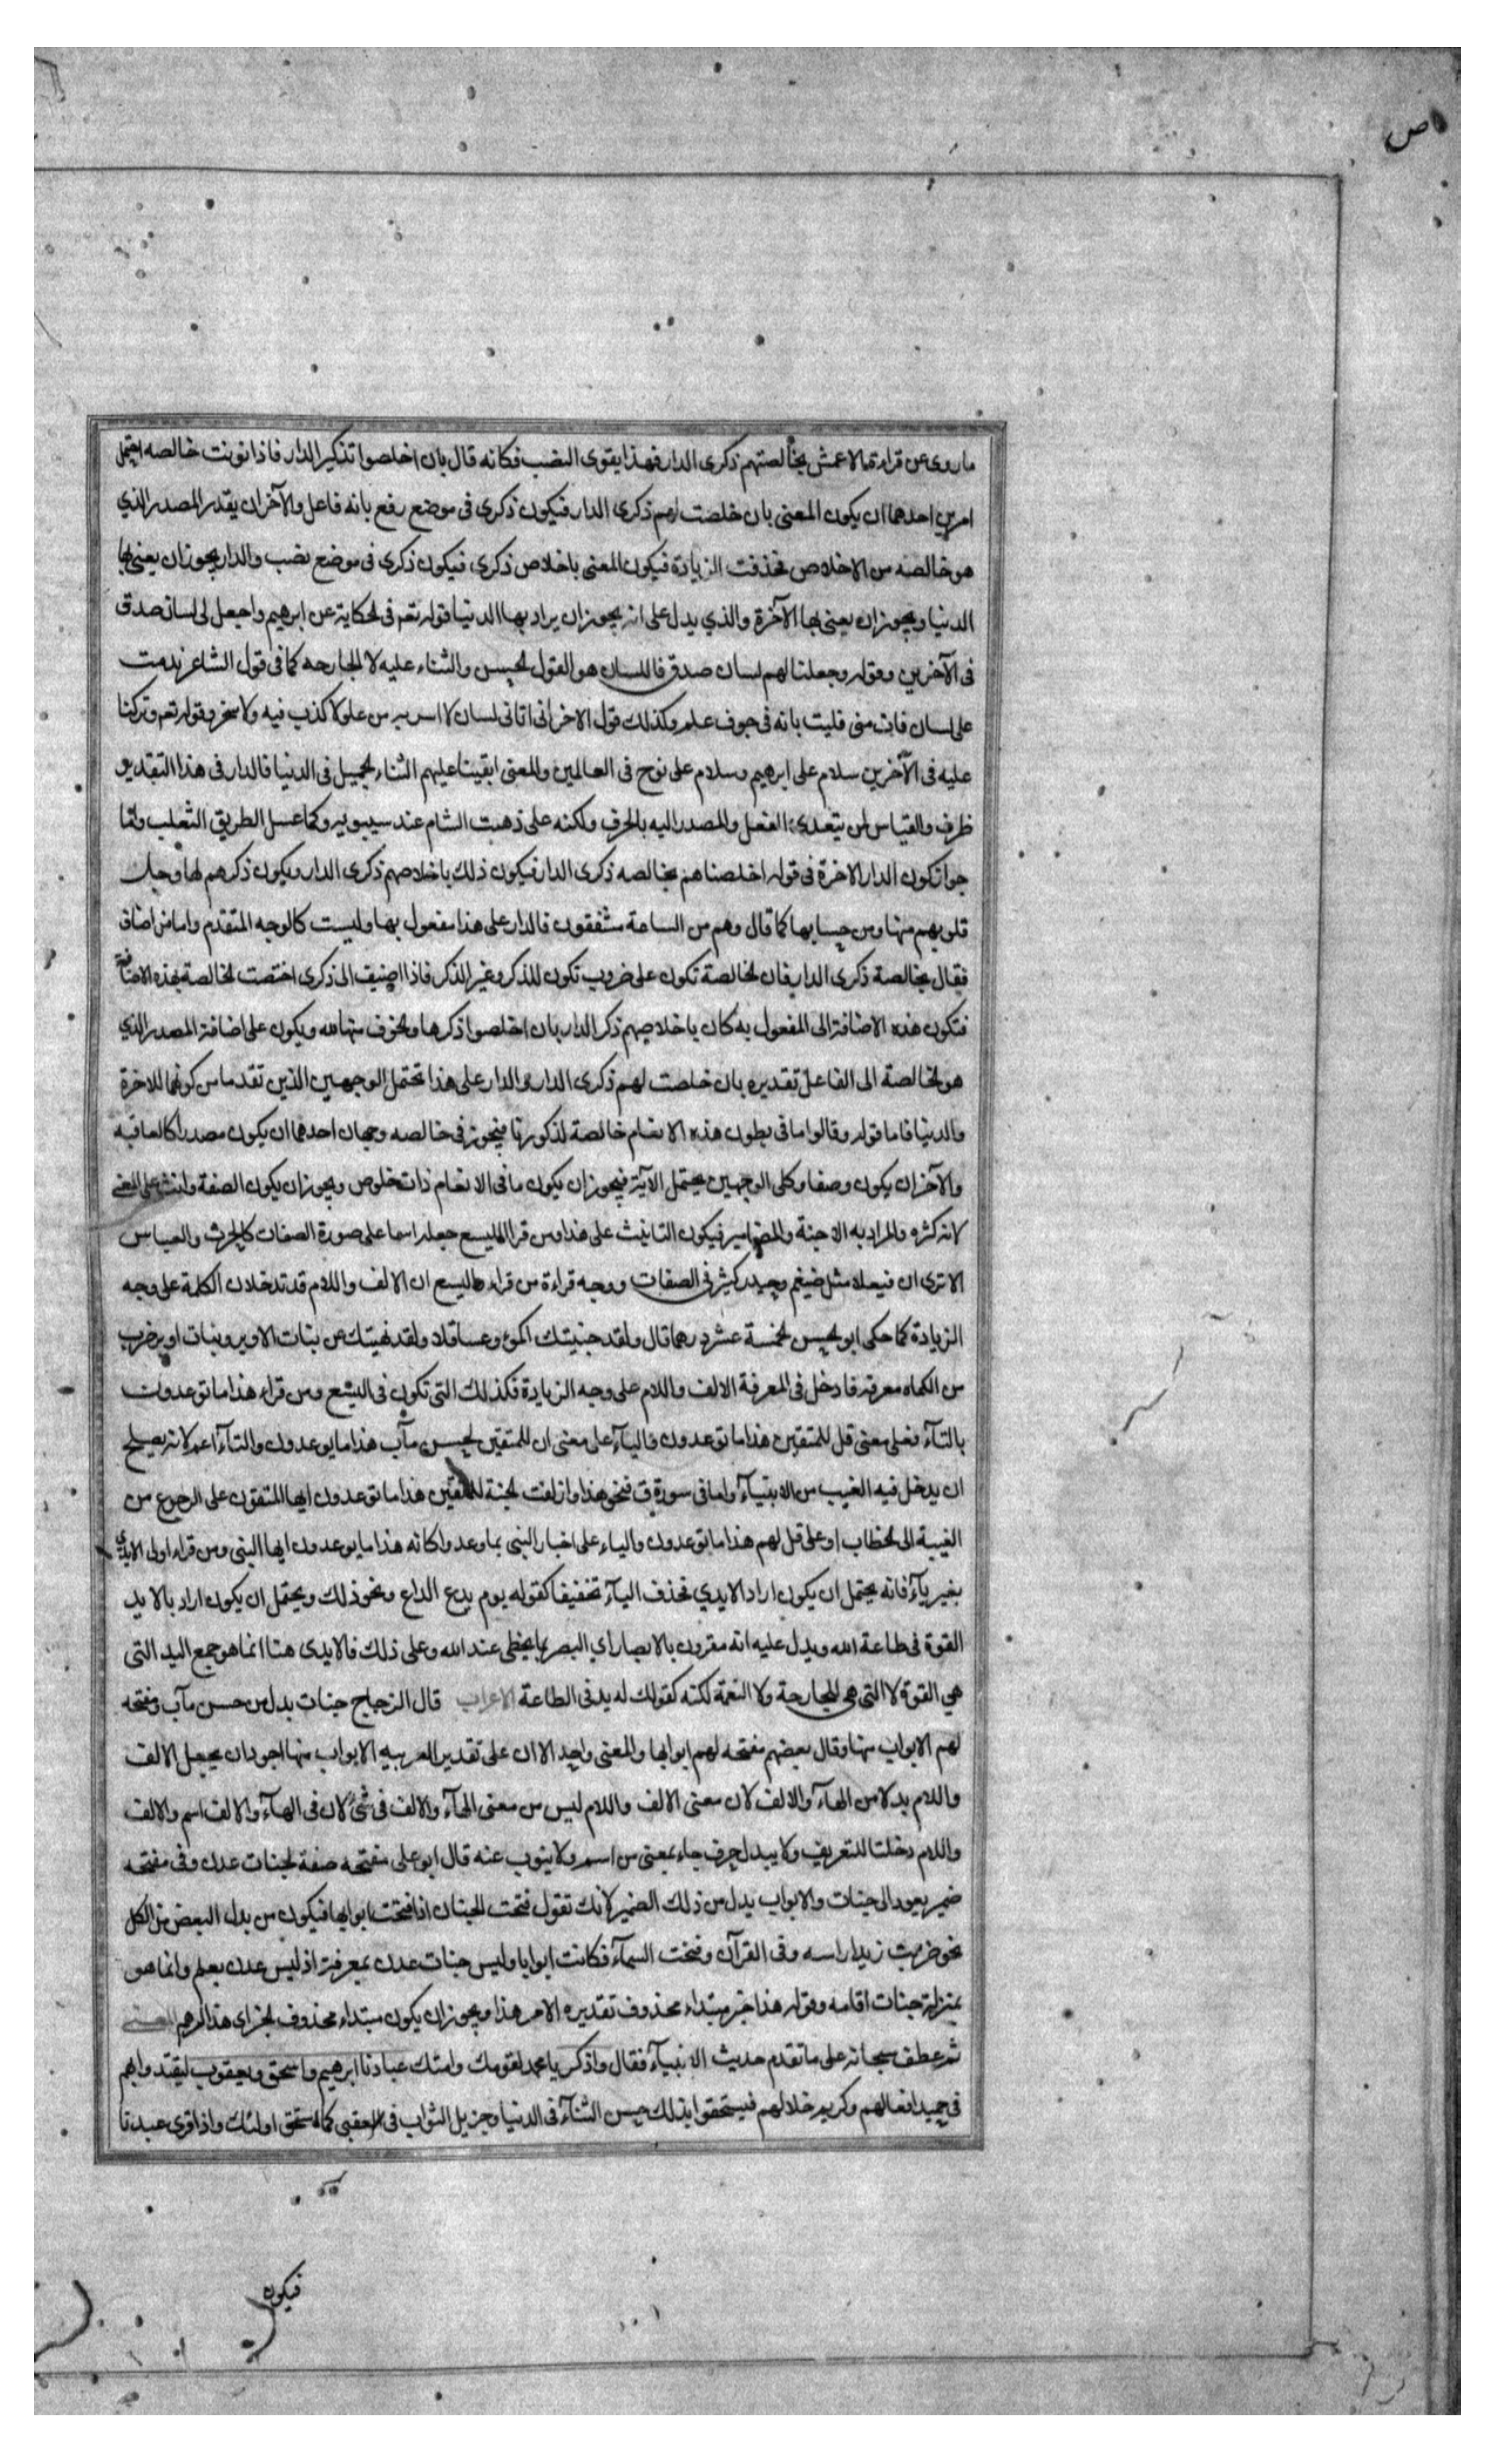 ص
ما روى عن قراءة الاعمش بخالصتهم ذكرى الدار فهذا يقوى النصب فكانه قال بان اخلصوا تذكير الدار فاذا نونت خالصه احتمل
امرين احدهما ان يكون المعنى بان خلصت لهم ذكرى الدار فيكون ذكرى فى موضع رفع بانه فاعل والآخر ان يقدر المصدر الذي
هو خالصه من الاخلاص فحذفت الزيادة فيكون المعنى باخلاص ذكرى فيكون ذكرى فى موضع نصب والدار يجوز ان يعنى بها
الدنيا ويجوز ان يعنى بها الآخرة والذي يدل على انه يجوز ان يراد بها الدنيا قوله تعم فى الحكاية عن ابرهيم واجعل لى لسان صدق
فى الآخرين وقوله وجعلنا لهم لسان صدق فاللسان هو القول الحسن والثناء عليه لا الجارحه كما فى قول الشاعر ندمت
على لسان فات منى فليت بانه فى جوف عكم وكذلك قول الاخر انى اتانى لسان لا اسر به من علو لا كذب فيه ولا سخر وقوله تعم وتركنا
عليه فى الآخرين سلام على ابرهيم وسلام على نوح فى العالمين والمعنى ابقينا عليهم الثناء الجميل فى الدنيا فالدار فى هذا التقدير
ظرف والقياس ان يتعدى الفعل والمصدر اليه بالحرف ولكنه على ذهبت الشام عند سيبويه وكما عسل الطريق الثعلب واما
جواز كون الدار الاخرة فى قوله اخلصناهم بخالصه ذكرى الدار فيكون ذلك باخلاصهم ذكرى الدار ويكون ذكرهم لها وجل
قلوبهم منها ومن حسابها كما قال وهم من الساعة مشفقون فالدار على هذا مفعول بها وليست كالوجه المتقدم واما من اضاف
فقال بخالصة ذكرى الدار فان الخالصة تكون على ضروب تكون للذكر وغير الذكر فاذا اضيف الى ذكرى اختصت الخالصة بهذه الاضافة
فتكون هذه الاضافة الى المفعول به كان باخلاصهم ذكر الدار بان اخلصوا ذكرها والخوف منها لله ويكون على اضافة المصدر الذي
هو الخالصة الى الفاعل تقديره بان خلصت لهم ذكرى الدار والدار على هذا تحتمل الوجهين الذين تقدما من كونها للاخرة
والدنيا فاما قوله وقالوا ما فى بطون هذه الانعام خالصة لذكورنا فيجوز فى خالصه وجهان احدهما ان يكون مصدرا كالعافيه
والآخر ان يكون وصفا وكلى الوجهين يحتمل الآية فيجوز ان يكون ما فى الانعام ذات خلوص ويجوز ان يكون الصفة وانث على المعنى
لانه كثره والمراد به الاجنة والمضامير فيكون التانيث على هذا ومن قرا الليسع جعله اسما على صورة الصفات كالحرث والعباس
الا ترى ان فيعلا مثل ضيغم وحيدر كثير فى الصفات ووجه قراءة من قراء اليسع ان الالف واللام قد تدخلان الكلمة على وجه
الزيادة كما حكى ابو الحسن الخمسة عشر درهما قال ولقد جنيتك اكمؤ وعساقلا ولقد نهيتك عن بنات الاوبر وبنات اوبر ضرب
من الكماه معرفه فادخل فى المعرفة الالف واللام على وجه الزيادة فكذلك التى تكون فى اليسع ومن قراء هذا ما توعدون
بالتآء فعلى معنى قل للمتقين هذا ما توعدون واليآء على معنى ان للمتقين لحسن مآب هذا ما يوعدون والتآء اعم لانه يصلح
ان يدخل فيه الغيب من الانبيآء واما فى سورة ق فنحو هذا وازلفت الجنة للمتقين هذا ما توعدون ايها المتقون على الرجوع من
الغيبة الى الخطاب او على قل لهم هذا ما توعدون والياء على اخبار النبى بما وعدوا كانه هذا ما يوعدون ايها النبى ومن قراء اولى الايد
بغير يآء فانه يحتمل ان يكون اراد الايدي فحذف اليآء تخفيفا كقوله يوم يدع الداع ونحو ذلك ويحتمل ان يكون اراد بالايد
القوة فى طاعة الله ويدل عليه انه مقرون بالابصار اي البصر بما يحظى عند الله وعلى ذلك فالايدى هنا انما هو جمع اليد التى
هي القوة لا التى هى الجارحة ولا النعمة لكنه كقولك له يد فى الطاعة الاعراب قال الزجاج جنات بدل من حسن مآب مفتحه
لهم الابواب منها وقال بعضهم مفتحه لهم ابوابها والمعنى واحد الا ان على تقدير العربيه الابواب منها اجود ان يجعل الالف
واللام بدلا من الهآء والالف لان معنى الالف واللام ليس من معنى الهآء والالف فى شئ لان فى الهآء والالف اسم والالف
واللام دخلتا للتعريف ولا يبدل حرف جاء بمعنى من اسم ولا ينوب عنه قال ابو على مفتحه صفة لجنات عدن وفى مفتحه
ضمير يعود الى جنات والابواب بدل من ذلك الضمير لانك تقول فتحت الجنان اذا فتحت ابوابها فيكون من بدل البعض من الكل
نحو ضربت زيدا راسه وفى القرآن وفتحت السمآء فكانت ابوابا وليس جنات عدن بمعرفة اذ ليس عدن بعلم وانما هو
بمنزلة جنات اقامه وقوله هذا خبر مبتداء محذوف تقديره الامر هذا ويجوز ان يكون مبتداء محذوف الخبر اى هذا امرهم المعنى
ثم عطف سبحانه على ما تقدم حديث الانبيآء فقال واذكر يا محمد لقومك وامتك عبادنا ابرهيم واسحق ويعقوب ليقتدوا بهم
فى حميد افعالهم وكريم خلالهم فيستحقوا بذلك حسن الثنآء فى الدنيا وجزيل الثواب فى العقبى كما استحق اولئك واذا قرى عبدنا
فيكون